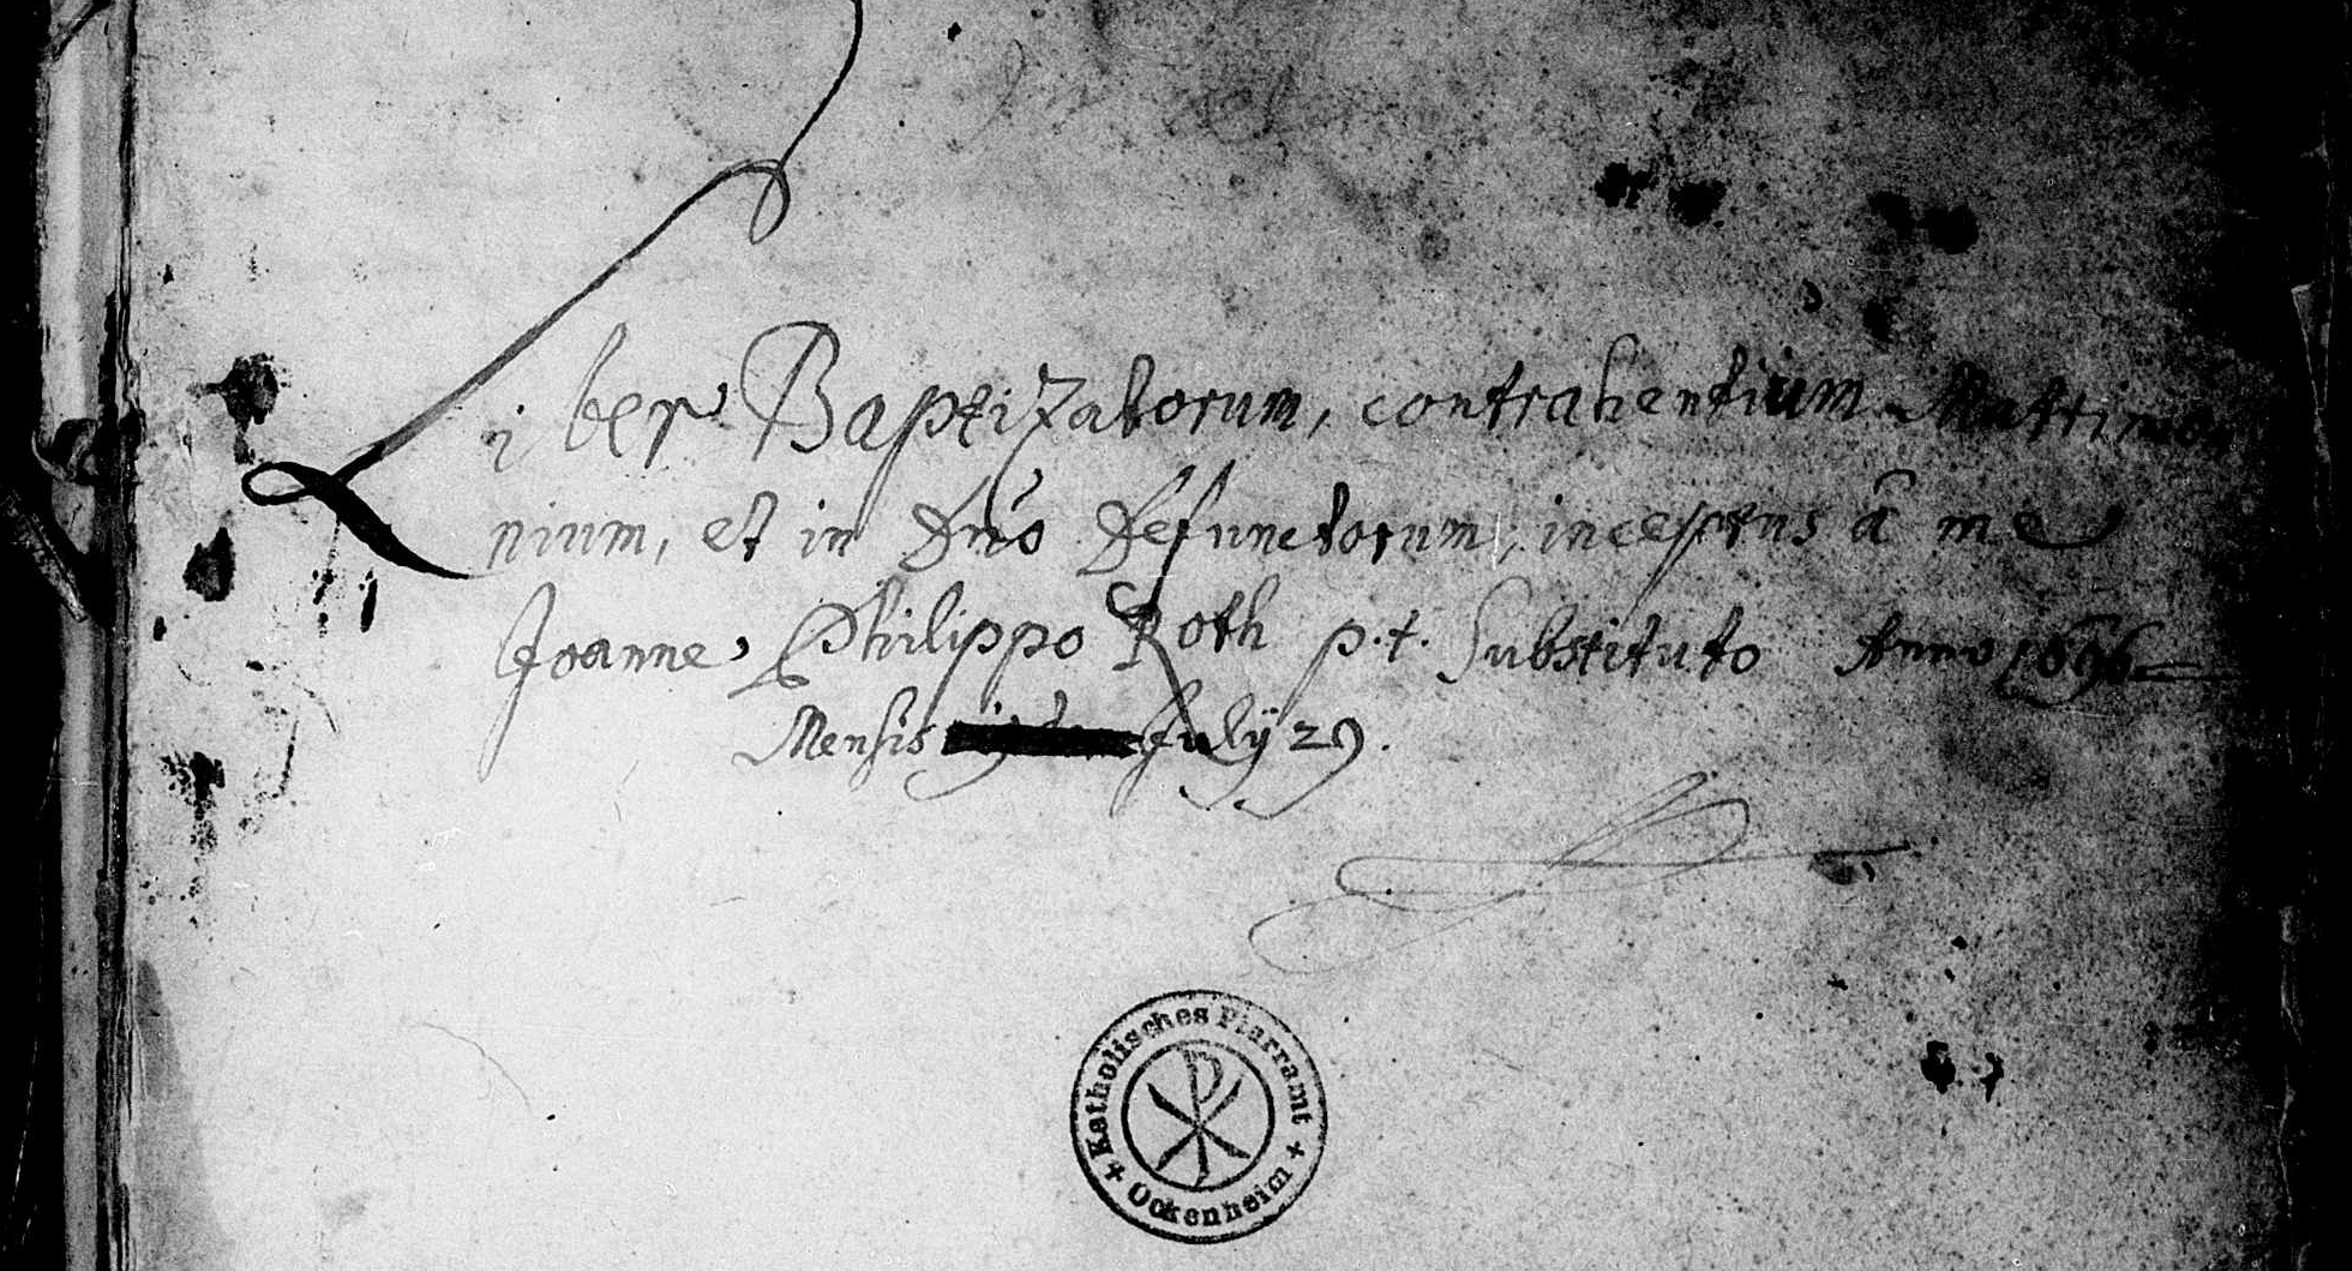 Liber Baptizatorum, contrahentium Matrimo
nium, et in Dno Defunctorum, inceptus â me
Joanne Philippo Roth p.t. Substituto Anno 1696
Mensis July 29.
Katholisches Pfarramt
+ Ockenheim +